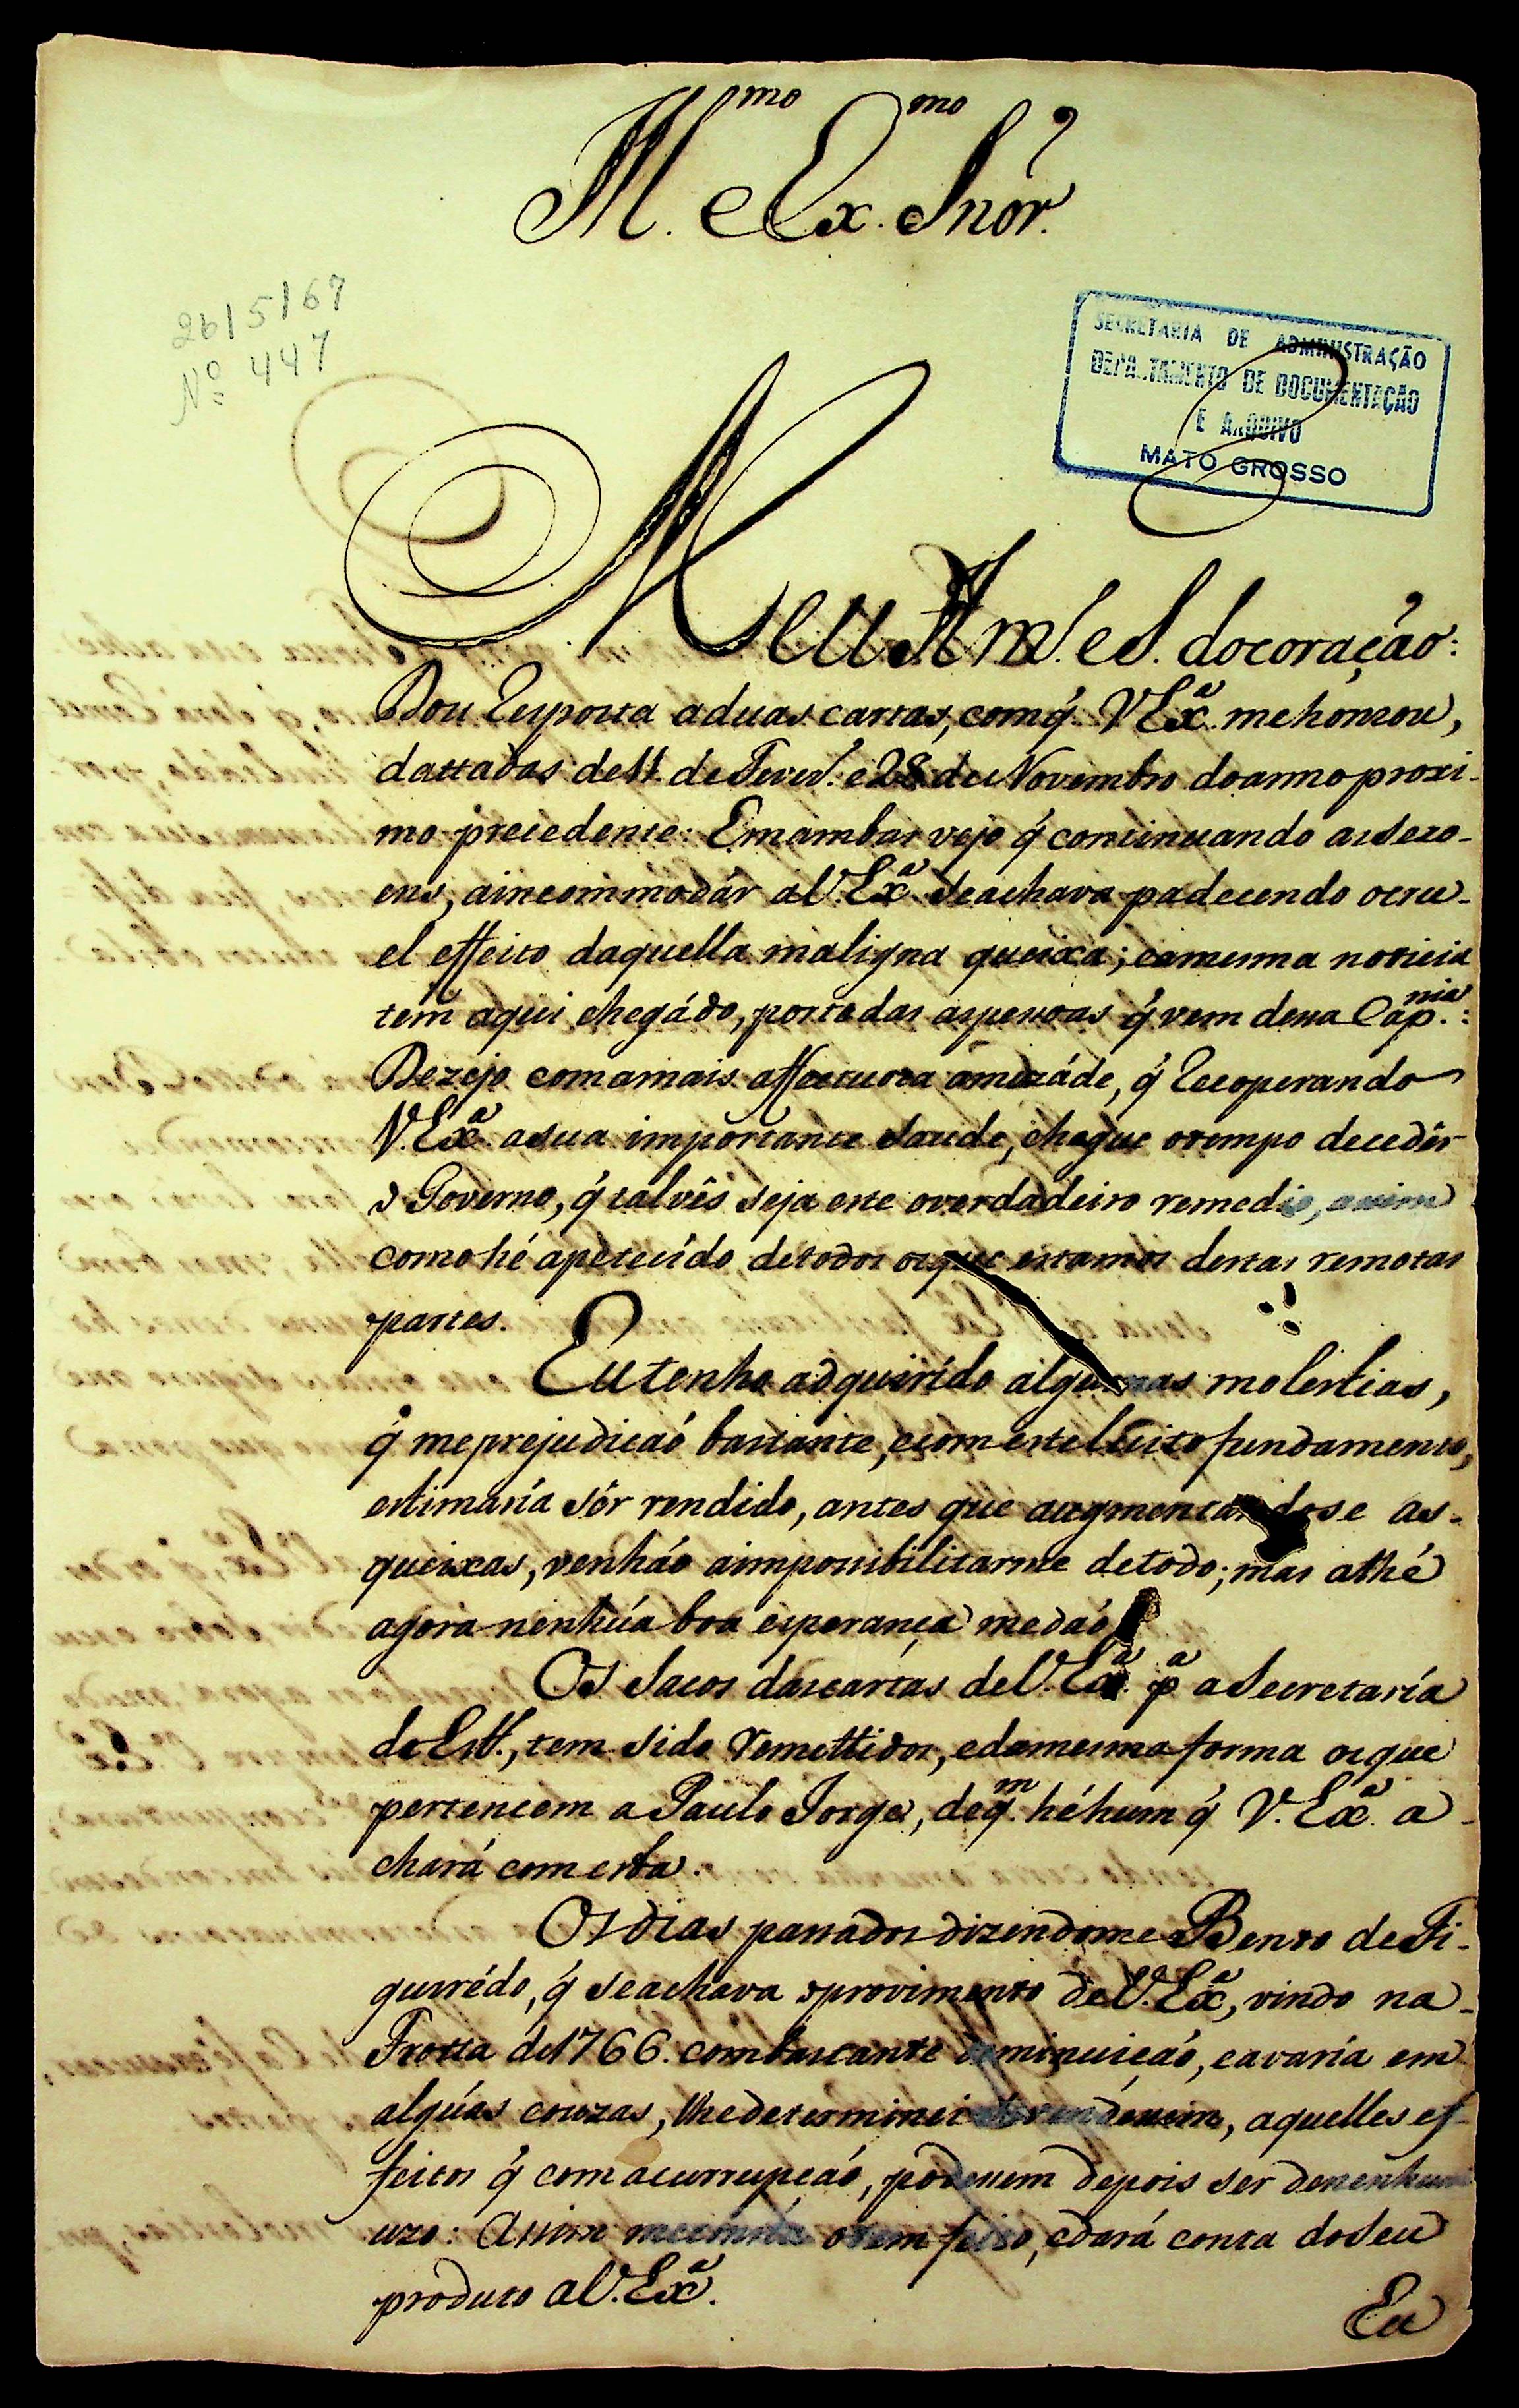 Ill.mo e Ex.mo Snor.
2615167
Nº 447
SECRETARIA DE ADMINISTRAÇÃO
DEPARTAMENTO DE DOCUMENTAÇÃO
E ARQUIVO
MATO GROSSO
Meu Am.º e S. docoração:
Dou Resposta aduas cartas, comq̃ V Ex.ª mehonrou,
dattadas de 11. de Fever.º e 28 de Novembro doanno proxi-
mo precedente: Emambas vejo q̃ continuando as Sezo-
ens, aincommodár aV. Ex.ª Seachava padecendo ocru-
el effeito daquella maligna queixa; eamesma noticia
tem aqui chegádo, portodas aspessoas q̃ vem dessa Cap.nia:
Dezejo comamais affectuoza amizáde, q̃ Recoperando
V. Ex.ª asua importante Saude, chegue otempo decedêr
o Governo, q̃ talvês seja este overdadeiro remedio, assim
como hé apetecído, detodos osque estamos destas remotas
partes.
Eu tenho adquirído algumas molestias,
q̃ meprejudicaó bastante, ecom este lícito fundamento,
estimaría sêr rendido, antes que augmentandose as-
queixas, venháo aimpossibilitarme detodo; mas athé
agora nenhúa boa esperança medaó
Os Sacos dascartas deV. Ex.ª p.ª aSecretaría
do Est.º, tem sido Remettidos, edamesma forma osque
pertencem a Paulo Jorge, deq.m héhum q̃ V. Ex.ª a-
chará com esta.
Os dias passados dizendome Bento de Fi-
gueirêdo, q̃ Seachava oprovimento deV. Ex.ª, vindo na-
Frotta de 1766. combastante deminuiçáo, eavaría em
algúas couzas, lhedeterminei vendessem, aquelles ef-
feitos q̃ comacurrupçáo, podessem depois ser denenhum
uzo: Assim otem feito, edará conta doSeu
produto aV. Ex.ª.
Eu